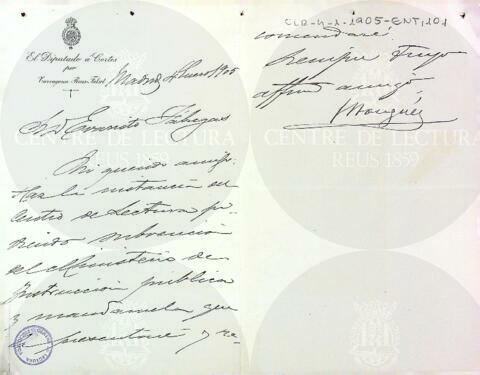 El Diputado á Cortes
por
Tarragona-Reus-Falset.
Madrid 4 Enero 1905
Sr. D. Evaristo Fábregas
Mi querido amigo:
Haz la instancia del
Centro de Lectura pi-
diendo subvención
del Ministerio de
Instrucción pública
y mandamela que
la presentaré y re-
CLR-4-1-1905-ENT,101
comendaré.
Siempre tuyo
affmo amigo
CENTRE DE LECTURA
REUS 1859
CENTRE DE LECTURA
REUS 1859